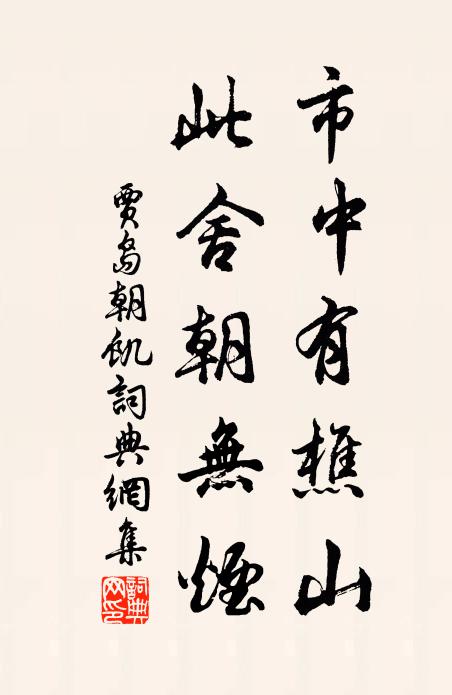 市中有樵山
此舍朝無煙
賈島朝飢詞典網集
詞典网印